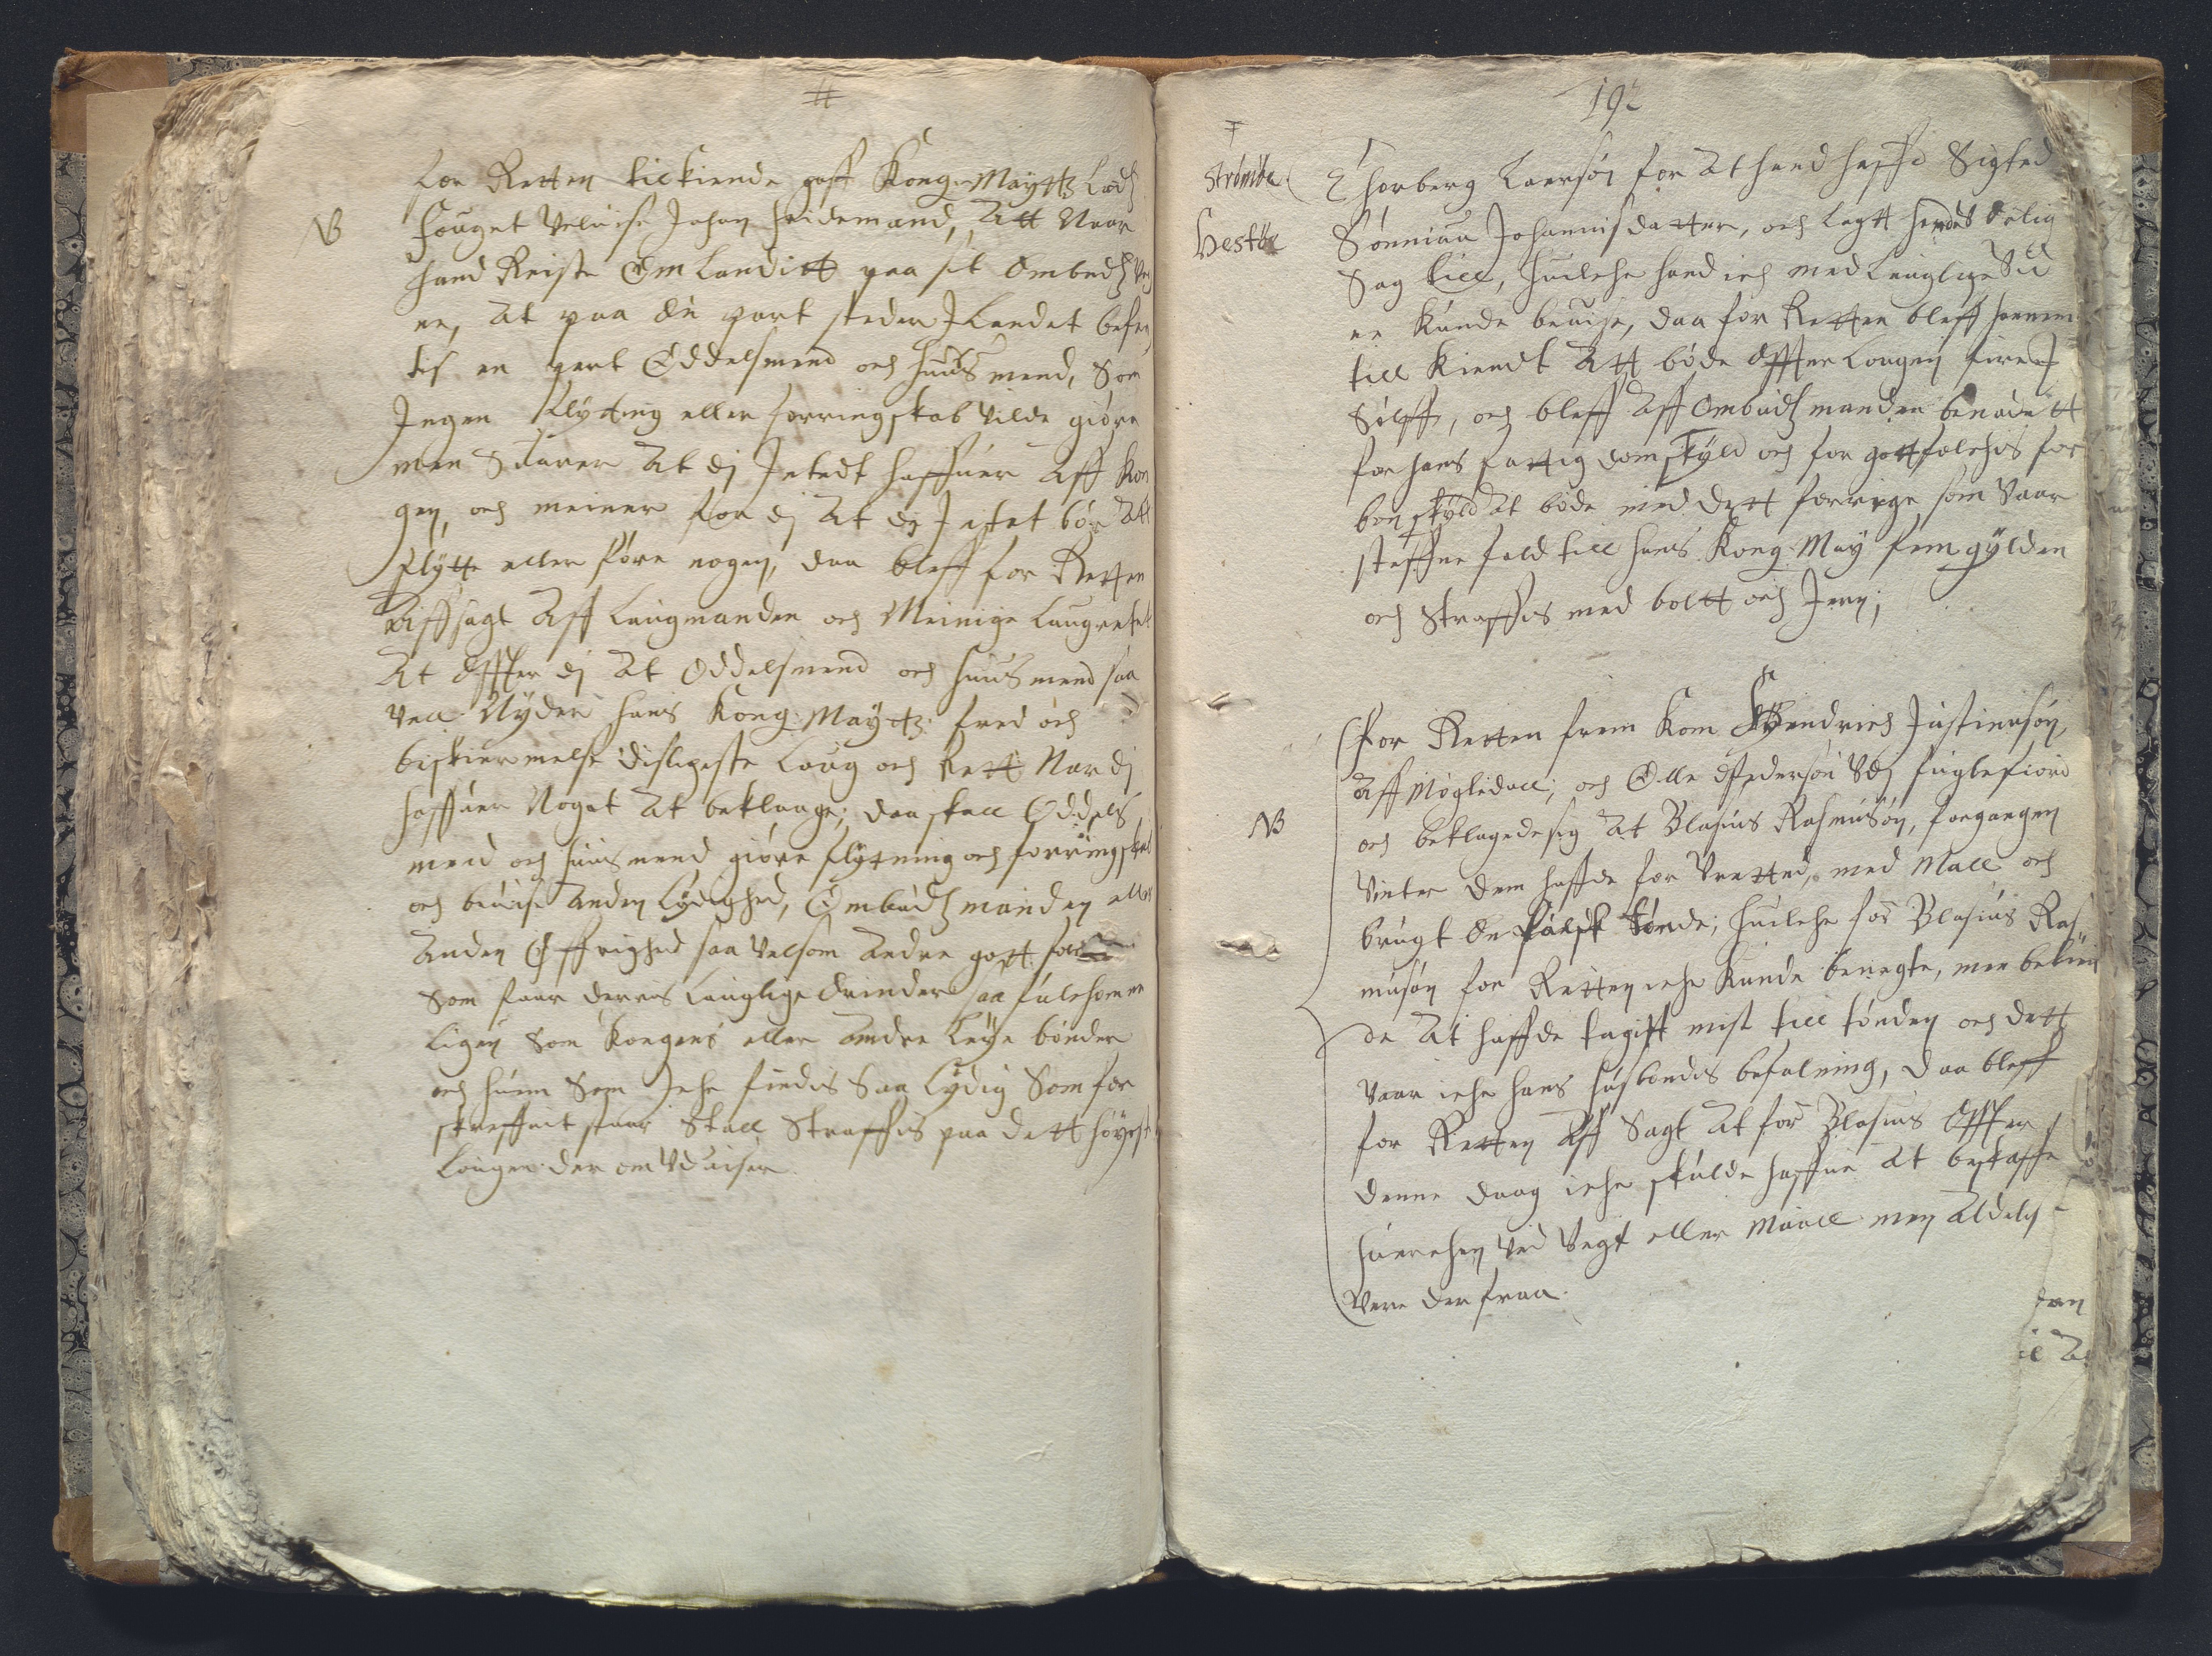 #
for Retten tilkiende gaff Kong: Maytz Landz
NB
fouget Velvise Johan Heidemand, Att Naar
hand Reiste Om Landitt paa sit Ombudz
ne, At paa En part steder I Landet befin
dis en part Oddelsmend och huusmend, Som
Ingen flytning eller forringskab Vilde giøre
men Suarer At dj Intedt haffuer Aff Kon
gen, och meiner for dj At dj Icket bør Att
flytte eller føre nogen, daa bleff for Retten
Aff sagt Aff Laugmanden och Meinige Laugrettet
At Effter dj At Oddelsmend och huusmend saa
Vell Nyder hans Kong: Maytz: fred och
beskiermelse disligeste Laug och Rett Nar dj
haffuer Noget At beklaage; daa skall Oddels
mend och huusmend giøre flytning och forringskab
och beuise Anden Lydighed, Ombudzmanden eller
Anden Øffrighed saa Velsom Andre gott folch
Som faar deres Lauglige saa fulkomme
ligen Som Kongens eller Andre Leye bønder
och huem Som Iche findis Saa Lydig Som for
skreffuit staar Skall Straffis paa dett høyeste
Lougen der om Vduiser.
192
Strømbø
Hestøe
Thorberg Laersøn for At hand haffde Sigted
Sønniua Johannisdatter, och Lagt hendes
Sag till, huilche hand ich med Lauglige Vid
ne Kunde beuise, daa for Retten bleff hannem
till Kiendt Att bøde Effter Lougen
Sølff, och bleff Aff Ombudzmanden benaadett
for hans fattigdom skyld och for gottfolchis for
bøn skyld At bøde med dett forrige som Vaar
steffnefald till hans Kong: May fem gylden
och Straffis med boltt och Jern;
for Retten frem Kom Hendrich Justinersøn,
Aff Møglidall; och Olle Pedersøn Vdj fuglefiord
NB
och beklagede sig At Blasius Rasmusøn, forgangen
Vinter dem haffde for Vrettid, med Mall och
brugt En falsk tønde; huilche for Blasius Ras„
musøn for Retten iche Kunde benegte, men bekien
de At haffde tagitt mist till tønden och dett
Vaar iche hans husbondis befalning, daa bleff
for Retten Aff Sagt At for Blasius Effter
denne daag iche skulde haffue At bestaffe
huerchen Ved Vegt eller Maall men Aldelis
Vere der fraa.